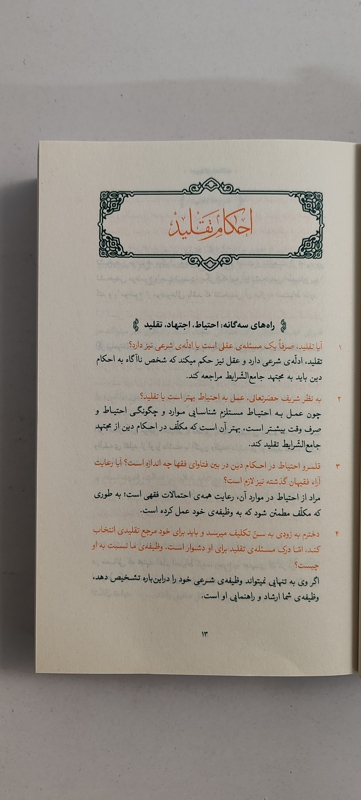 احکام تقلید
راه‌های سه‌گانه: احتیاط، اجتهاد، تقلید
۱ آیا تقلید، صرفاً یک مسئله‌ی عقلی است یا ادلّه‌ی شرعی نیز دارد؟
تقلید، ادلّه‌ی شرعی دارد و عقل نیز حکم میکند که شخص ناآگاه به احکام
دین باید به مجتهد جامع‌الشّرایط مراجعه کند.
۲ به نظر شریف حضرتعالی، عمل به احتیاط بهتر است یا تقلید؟
چون عمل به احتیاط مستلزم شناسایی موارد و چگونگی احتیاط و
صرف وقت بیشتر است، بهتر آن است که مکلّف در احکام دین از مجتهد
جامع‌الشّرایط تقلید کند.
۳ قلمرو احتیاط در احکام دین در بین فتاوای فقها چه اندازه است؟ آیا رعایت
آراء فقیهان گذشته نیز لازم است؟
مراد از احتیاط در موارد آن، رعایت همه‌ی احتمالات فقهی است؛ به طوری که
که مکلّف مطمئن شود که به وظیفه‌ی خود عمل کرده است.
۴ دخترم به زودی به سنّ تکلیف میرسد و باید برای خود مرجع تقلیدی انتخاب
کند، امّا درک مسئله‌ی تقلید برای او دشوار است، وظیفه‌ی ما نسبت به او
چیست؟
اگر وی به تنهایی نمیتواند وظیفه‌ی شرعی خود را دراین‌باره تشخیص دهد،
وظیفه‌ی شما ارشاد و راهنمایی او است.
۱۳